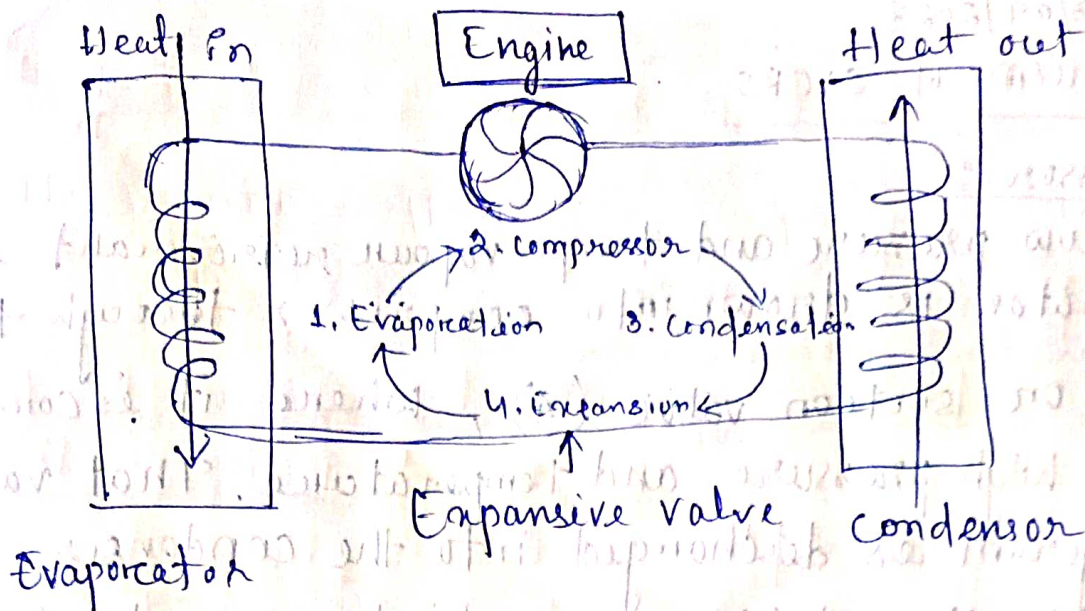 Heat in
Engine
Heat out
2. compressor
1. Evaporcation
3. Condensation
4. Expansion
Expansive valve
Condensor
Evaporcator